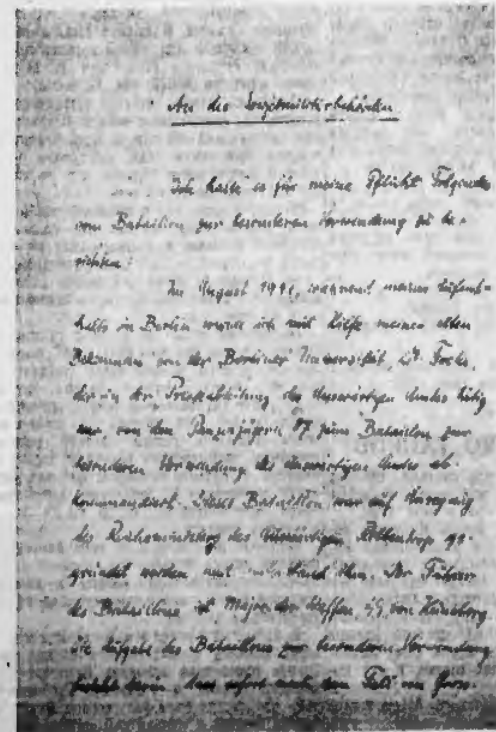 An die Sowjetmilitärbehörden
Ich halte es für meine Pflicht Folgendes
vom Bataillon zur besonderen Verwendung zu be-
richten:
Im August 1941, während meines Aufent-
halts in Berlin wurde ich mit Hilfe meines alten
Bekannten von der Berliner Universität, Dr. Focke,
der in der Presseabteilung des Auswärtigen Amtes tätig
war, von den Panzerjägern 17 zum Bataillon zur
besonderen Verwendung des Auswärtigen Amtes ab-
kommandiert. Dieses Bataillon war auf Anregung
des Reichsministers des Auswärtigen, Ribbentrop ge-
gründet worden und unterstand ihm. Der Führer
des Bataillons ist Major der Waffen SS von
Die Aufgabe des Bataillons zur besonderen Verwendung
besteht darin, dass sofort nach dem Fall von Gross-